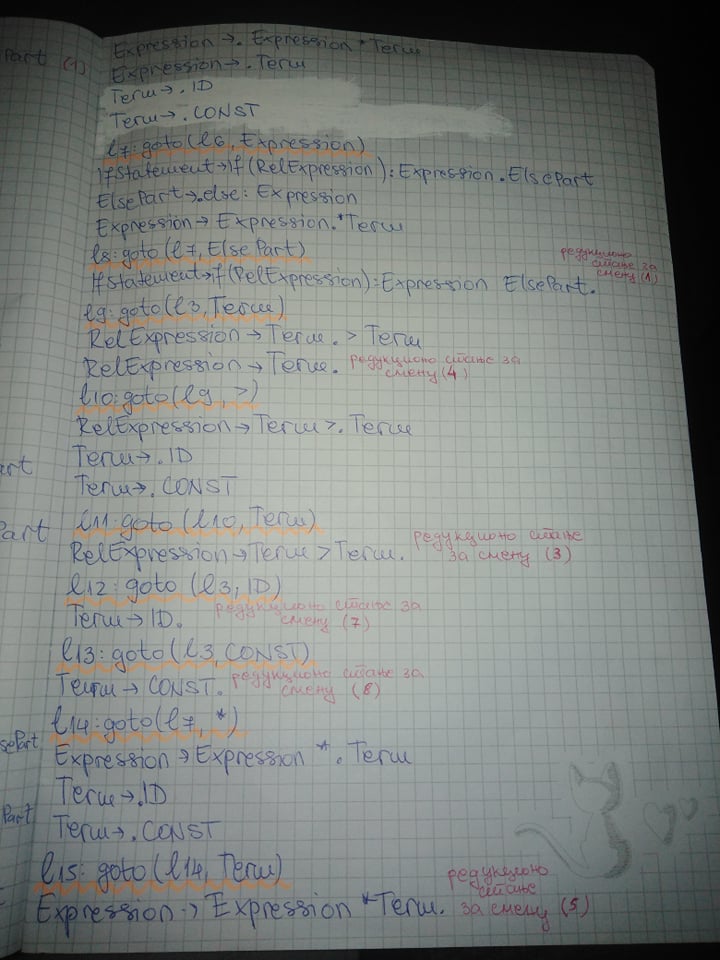 Part (1) Expression → . Expression * Term
Expression → . Term
Term → . ID
Term → . CONST
l7: goto(l6, Expression)
IfStatement → If (RelExpression) : Expression . ElsePart
ElsePart → . else : Expression
Expression → Expression . * Term
l8: goto(l7, ElsePart)
IfStatement → If (RelExpression) : Expression ElsePart . редукционо стање за смену (1)
l9: goto(l3, Term)
RelExpression → Term . > Term
RelExpression → Term . редукционо стање за смену (4)
l10: goto(l9, >)
RelExpression → Term > . Term
art Term → . ID
Term → . CONST
Part l11: goto(l10, Term)
RelExpression → Term > Term . редукционо стање за смену (3)
l12: goto (l3, ID)
Term → ID . редукционо стање за смену (7)
l13: goto(l3, CONST)
Term → CONST . редукционо стање за смену (8)
l14: goto(l7, *)
sePart Expression → Expression * . Term
Term → . ID
Part Term → . CONST
l15: goto(l14, Term)
Expression → Expression * Term . редукционо стање за смену (5)